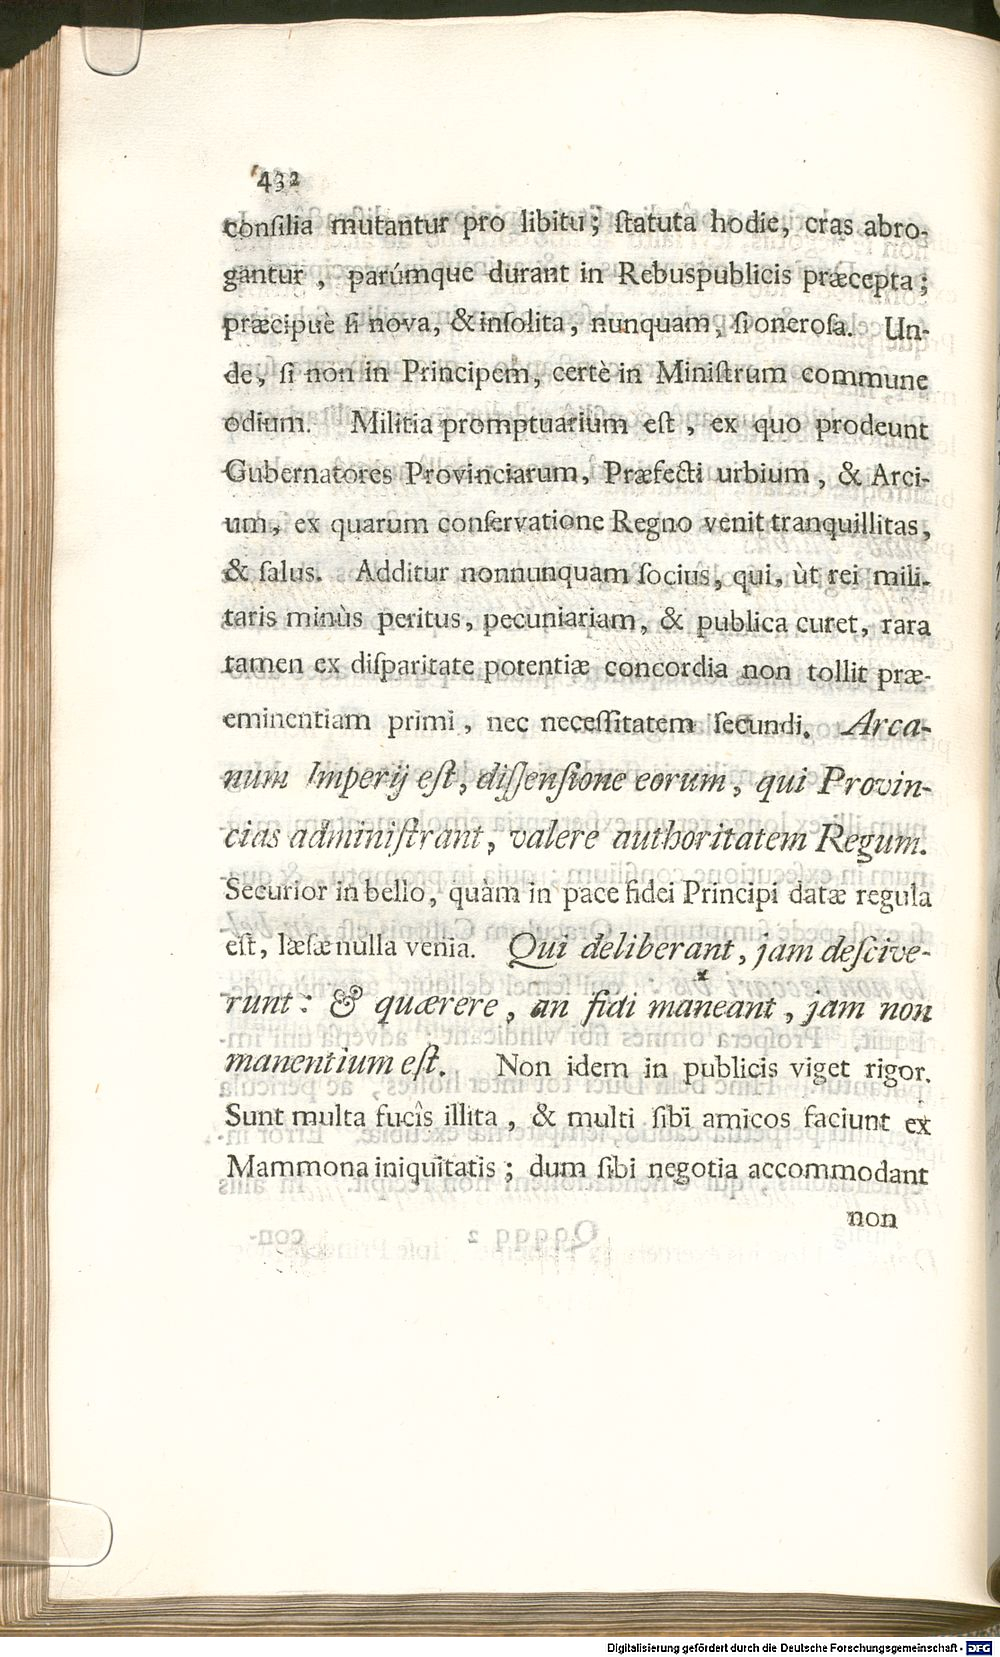 432
conſilia mutantur pro libitu; ſtatuta hodie, cras abro-
gantur, parúmque durant in Rebuspublicis præcepta;
præcipuè ſi nova, & inſolita, nunquam, ſi oneroſa. Un-
de, ſi non in Principem, certè in Miniſtrum commune
odium. Militia promptuarium eſt, ex quo prodeunt
Gubernatores Provinciarum, Præfecti urbium, & Arci-
um, ex quarum conſervatione Regno venit tranquillitas,
& ſalus. Additur nonnunquam ſocius, qui, ùt rei mili-
taris minùs peritus, pecuniariam, & publica curet, rara
tamen ex diſparitate potentiæ concordia non tollit præ-
eminentiam primi, nec neceſſitatem ſecundi. Arca-
num Imperij eſt, diſſenſione eorum, qui Provin-
cias adminiſtrant, valere authoritatem Regum.
Securior in bello, quàm in pace fidei Principi datæ regula
eſt, læſæ nulla venia. Qui deliberant, jam deſcive-
runt: & quærere, an fidi maneant, jam non
manentium eſt. Non idem in publicis viget rigor.
Sunt multa fucîs illita, & multi ſibi amicos faciunt ex
Mammona iniquitatis; dum ſibi negotia accommodant
non
Digitalisierung gefördert durch die Deutsche Forschungsgemeinschaft - DFG